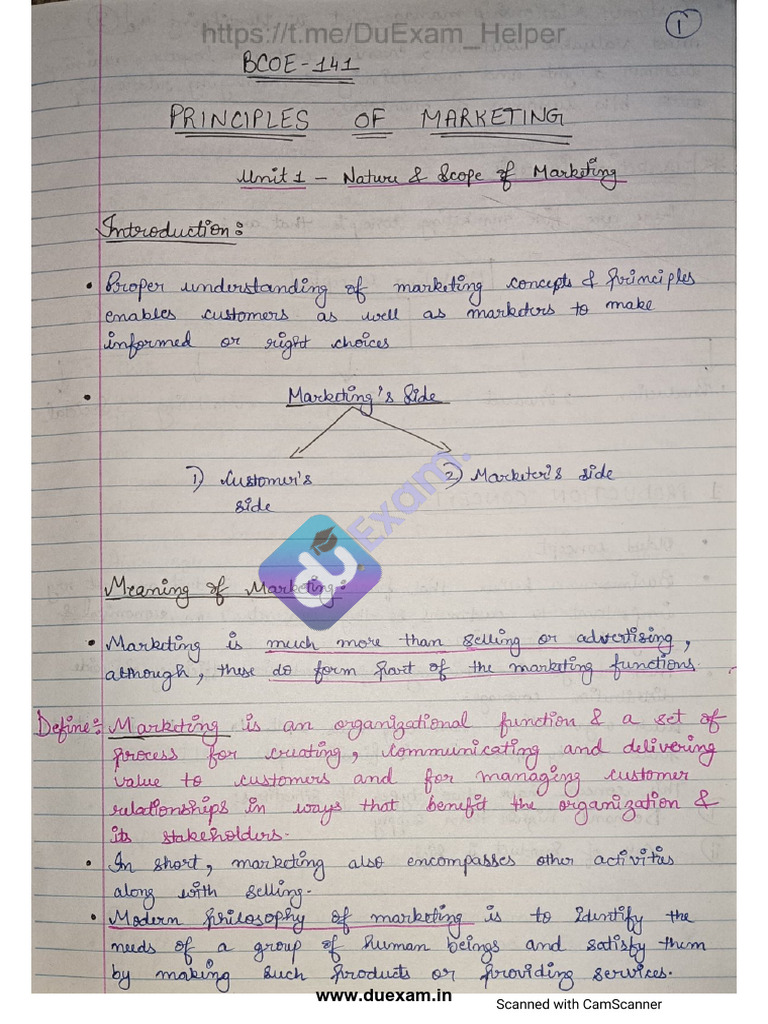 https://t.me/DuExam_Helper
1
BCOE-141
PRINCIPLES OF MARKETING
Unit 1 – Nature & Scope of Marketing
Introduction:
• Proper understanding of marketing concepts & principles
enables customers as well as marketers to make
informed or right choices
• Marketing's Side
1) Customer's side
2) Marketer's side
du Exam.
Meaning of Marketing:
• Marketing is much more than selling or advertising,
although, these do form part of the marketing functions.
Define: Marketing is an organizational function & a set of
process for creating, communicating and delivering
value to customers and for managing customer
relationships in ways that benefit the organization &
its stakeholders.
• In short, marketing also encompasses other activities
along with selling.
• Modern philosophy of marketing is to Identify the
needs of a group of human beings and satisfy them
by making such products or providing services.
www.duexam.in
Scanned with CamScanner